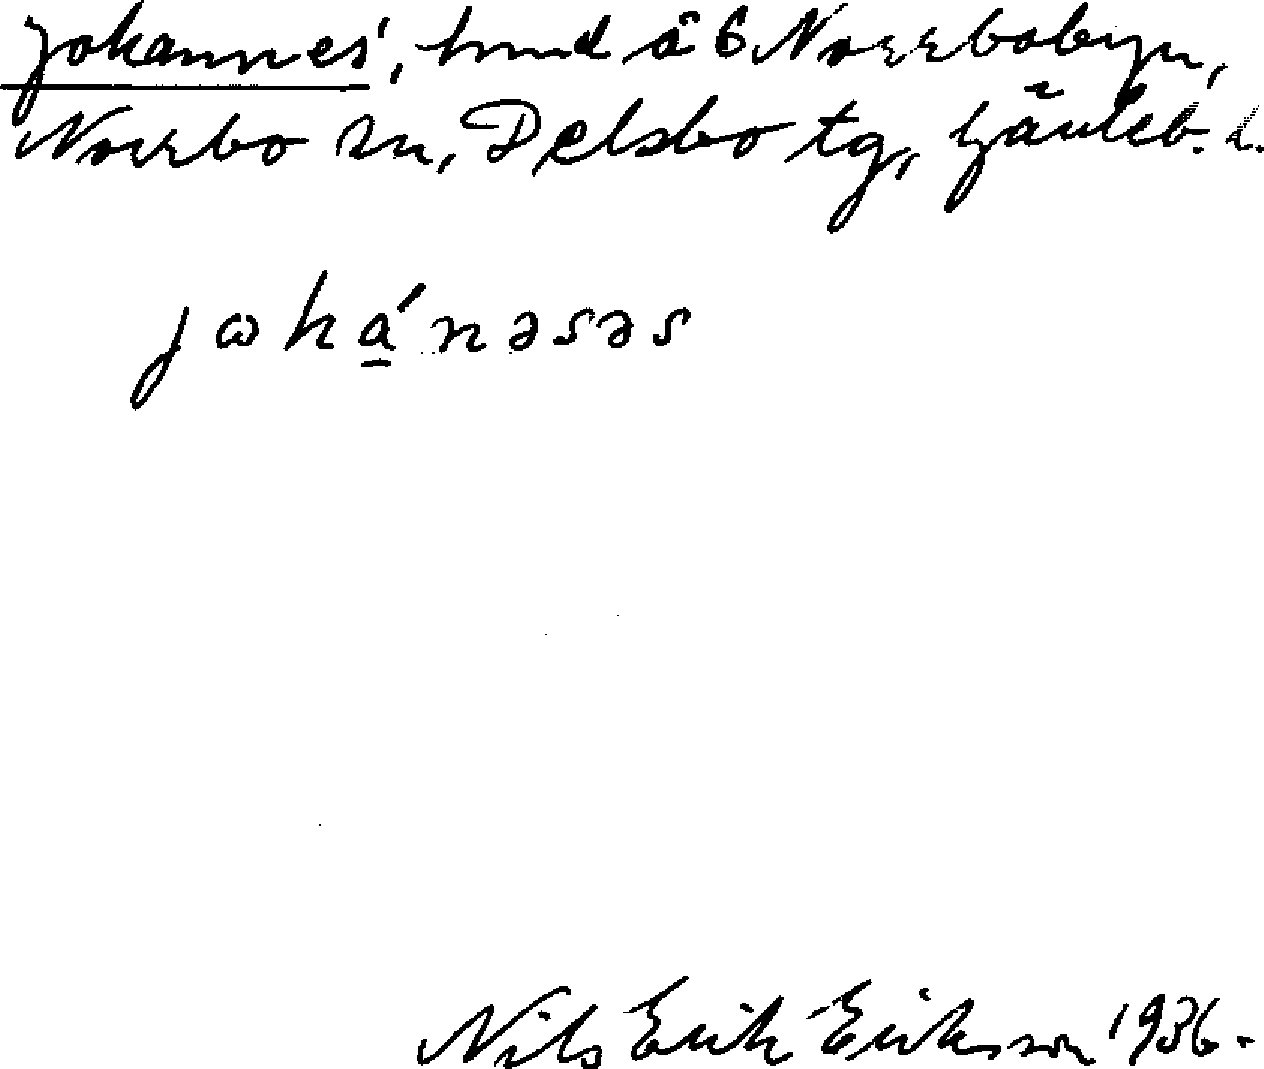 Johannes', hmd å 6 Norrbobyn,
Norrbo sn, Delsbo tg, Gävleb. l.
jωhánəsəs
Nils Erik Eriksson 1936.